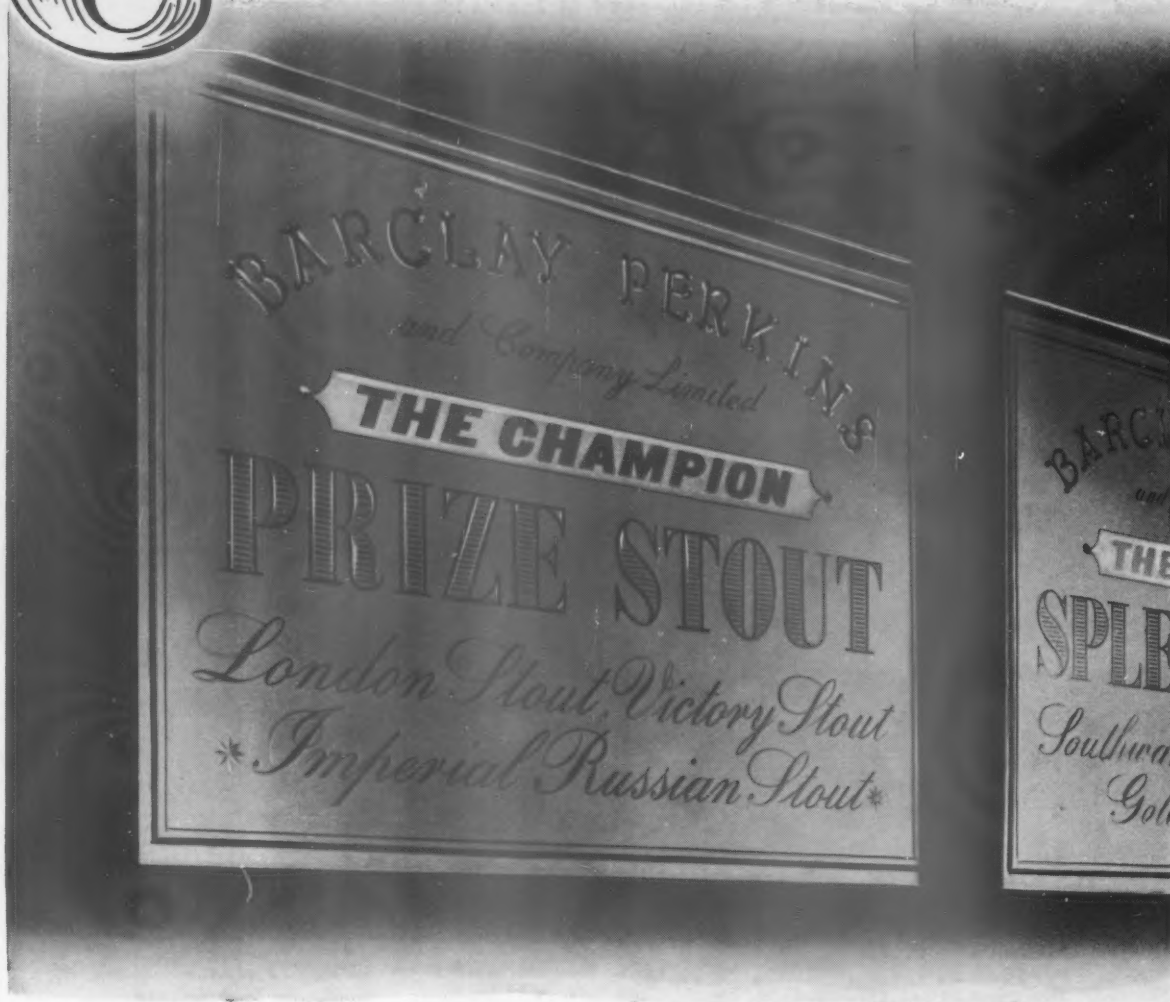 BARCLAY PERKINS
and Company Limited
THE CHAMPION
PRIZE STOUT
London Stout, Victory Stout
* Imperial Russian Stout *
THE